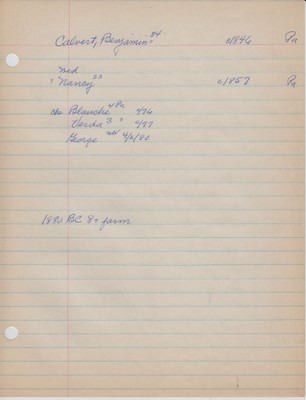 Calvert, Benjamin 34 c1846 Pa
med
" Nancy 23 c1857 Pa
ch Blanche 4Pa 4/76
Verda 3 " 4/77
George 4/6/80
1880 BC 80 farm